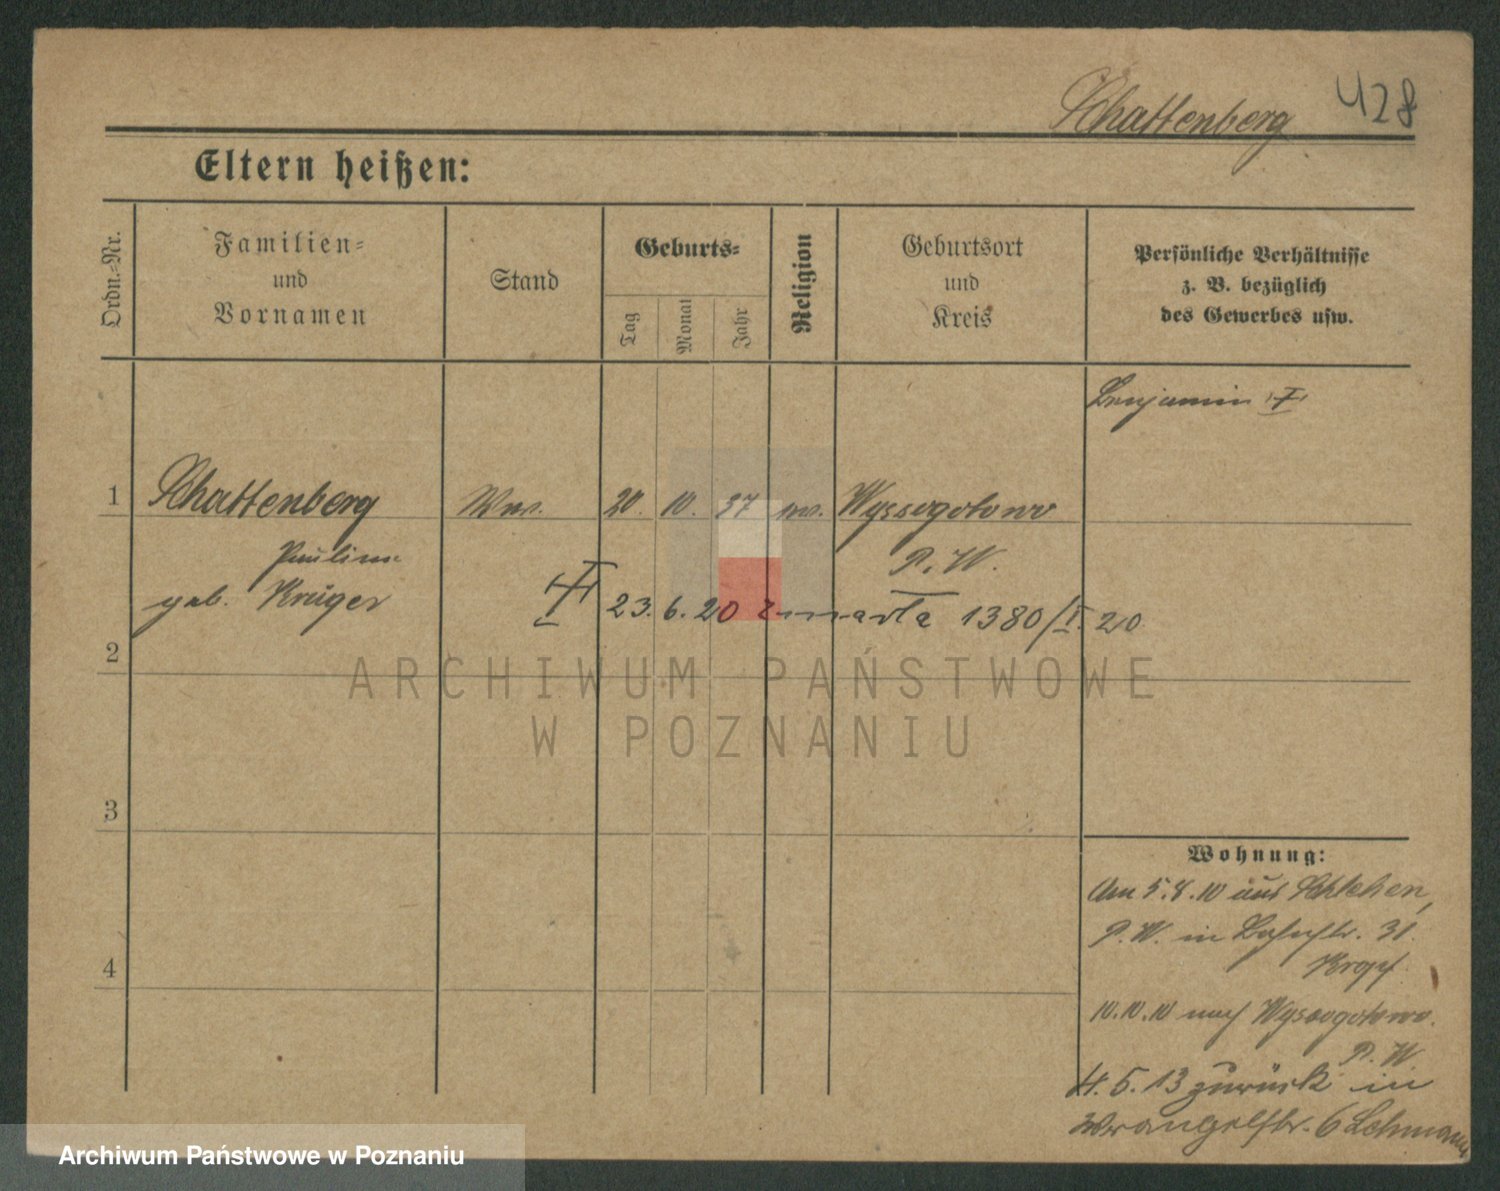 Schattenberg 428
Eltern heißen:
Ordn.-Nr.
Familien-
und
Vornamen
Stand
Geburts-
Tag
Monat
Jahr
Religion
Geburtsort
und
Kreis
Persönliche Verhältnisse
z. B. bezüglich
des Gewerbes usw.
Benjamin
1 Schattenberg Wwe. 20. 10. 37 ev. Wyssogotowo
Pauline P. W.
geb. Krüger
23. 6. 20 zmarła 1380/I. 20
2
ARCHIWUM PAŃSTWOWE
W POZNANIU
3
4
Wohnung:
Am 5.8.10 aus Schlehen,
P. W. in 31.
10.10.10 nach Wyssogotowo.
P. W
4. 5. 13 zurück in
Wrangelstr. 6 Lehmann
Archiwum Państwowe w Poznaniu